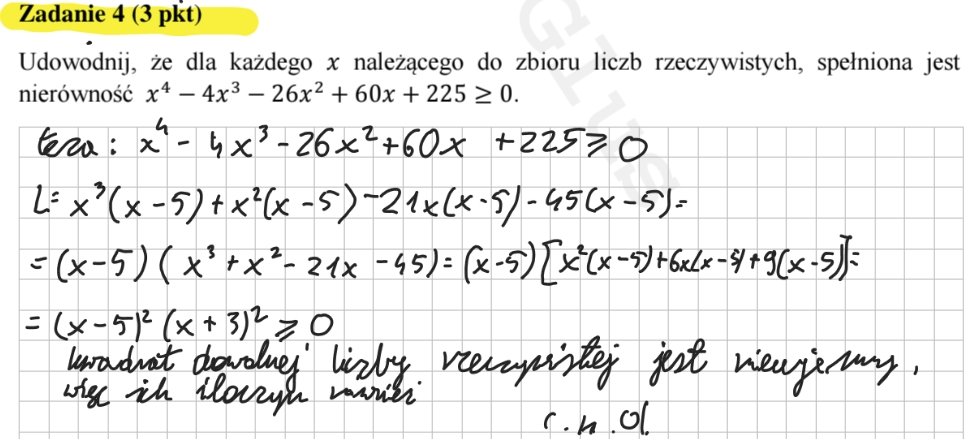 Zadanie 4 (3 pkt)
Udowodnij, że dla każdego x należącego do zbioru liczb rzeczywistych, spełniona jest
nierówność x⁴ − 4x³ − 26x² + 60x + 225 ≥ 0.
teza: x⁴ - 4x³ - 26x² + 60x + 225 ≥ 0
L = x³(x - 5) + x²(x - 5) - 21x(x - 5) - 45(x - 5) =
= (x - 5)(x³ + x² - 21x - 45) = (x - 5)[x²(x - 5) + 6x(x - 5) + 9(x - 5)] =
= (x - 5)² (x + 3)² ≥ 0
kwadrat dowolnej liczby rzeczywistej jest nieujemny,
więc ich iloczyn również
c.n.d.